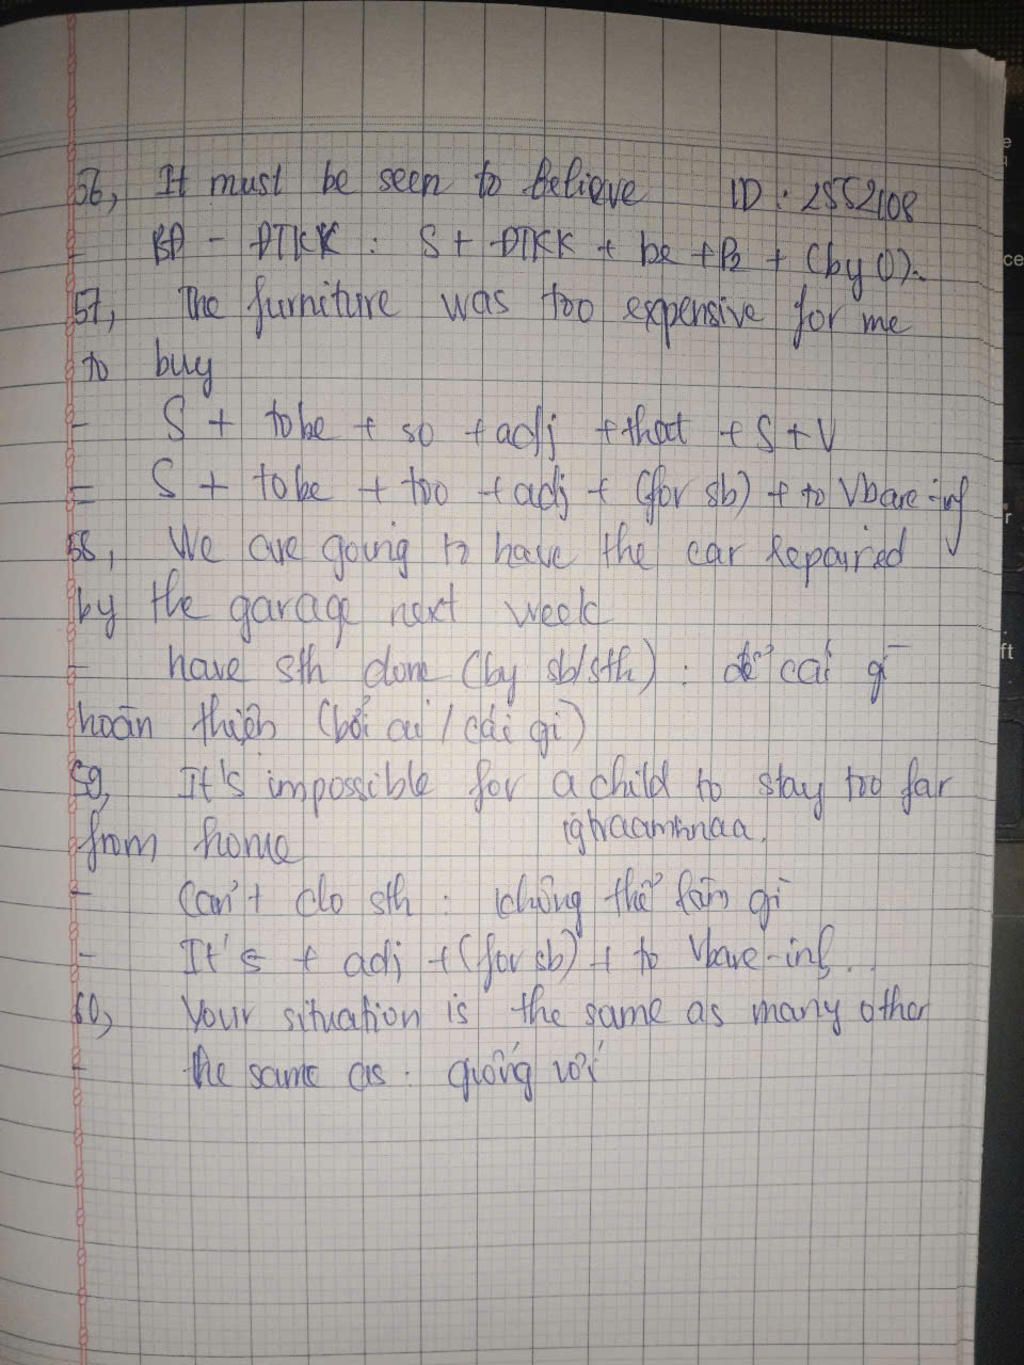 56, It must be seen to believe ID : 2552108
- BĐ - ĐTKK : S + ĐTKK + be + P2 + (by O).
57, The furniture was too expensive for me
to buy
- S + tobe + so + adj + that + S + V
= S + tobe + too + adj + (for sb) + to Vbare-inf
58, We are going to have the car repaired
by the garage next week
- have sth done (by sb/sth) : để cái gì
hoàn thiện (bởi ai / cái gì)
59, It's impossible for a child to stay too far
from home
- Can't do sth : không thể làm gì
- It's + adj + (for sb) + to Vbare-inf...
60, Your situation is the same as many other
- the same as : giống với